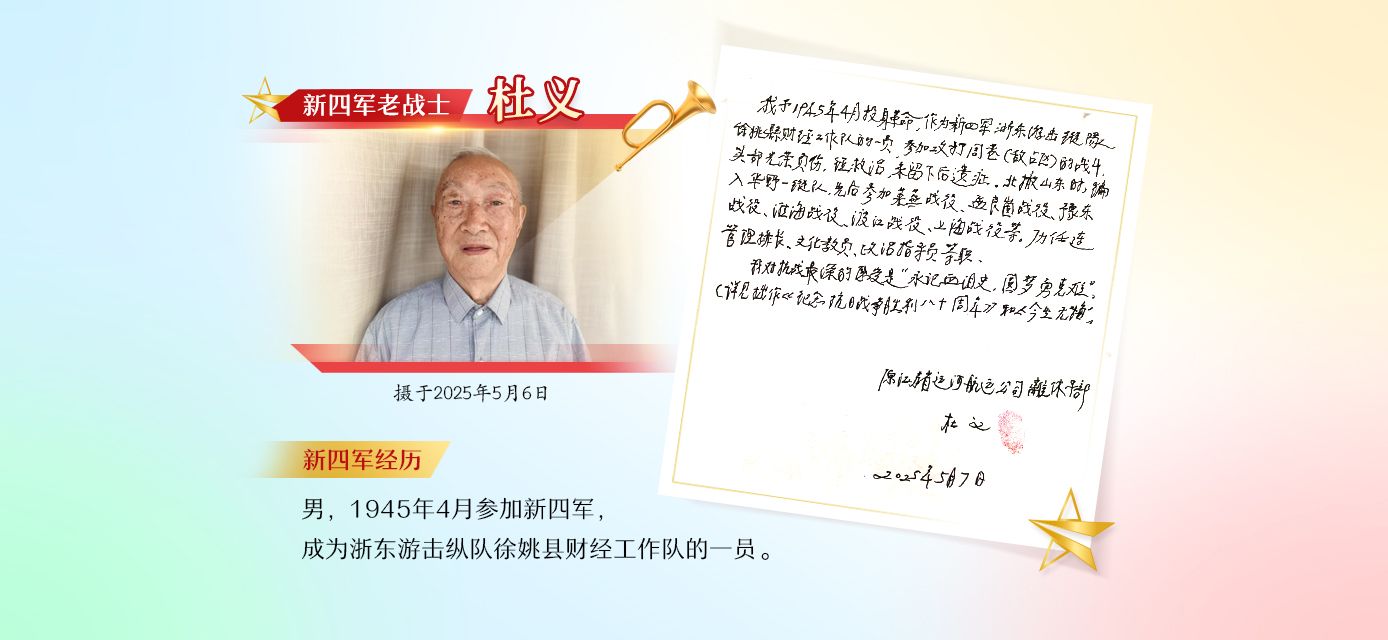 新四军老战士 杜义
摄于2025年5月6日
新四军经历
男，1945年4月参加新四军，
成为浙东游击纵队徐姚县财经工作队的一员。
我于1945年4月投身革命，作为新四军浙东游击纵队
徐姚县财经工作队的一员，参加攻打周巷（敌占区）的战斗，
头部光荣负伤，经救治，未留下后遗症。北撤山东时，编
入华野一纵队，先后参加莱芜战役、孟良崮战役、豫东
战役、淮海战役、渡江战役、上海战役等。历任连
管理排长、文化教员、政治指导员等职、
我对抗战最深的感受是“永记血泪史，圆梦勇克难”。
（详见拙作《纪念抗日战争胜利八十周年》和《今生无悔》
原江苏省运河航运公司离休干部
杜义
2025年5月7日